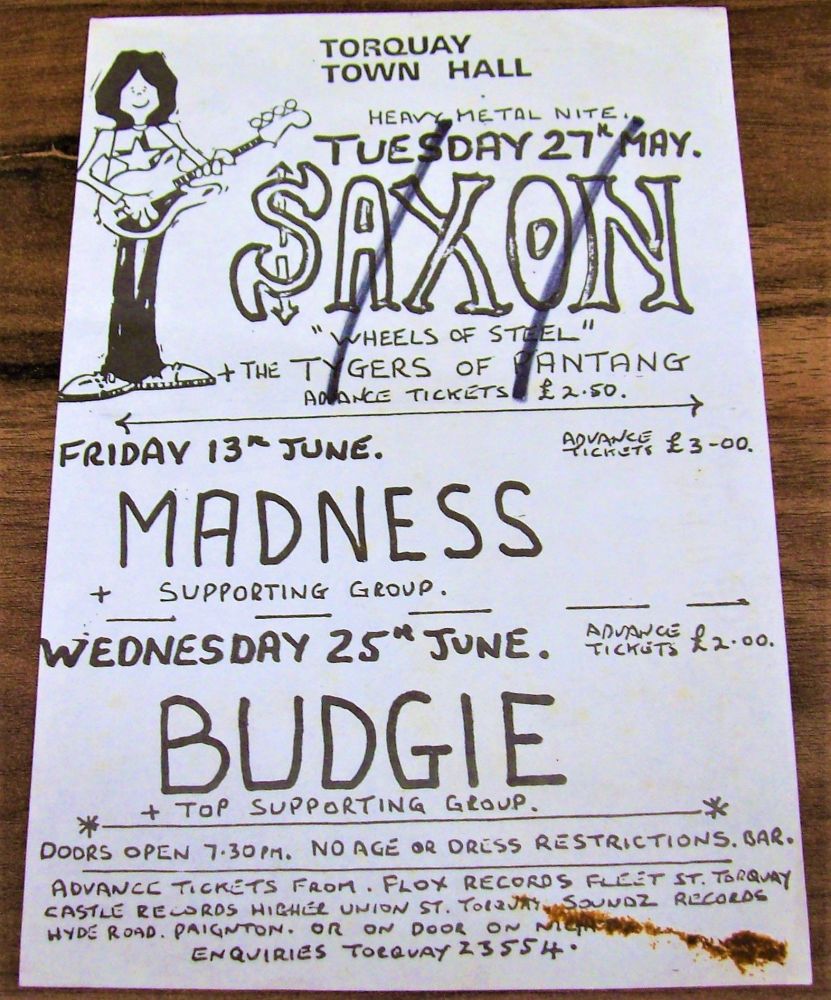 TORQUAY
TOWN HALL
HEAVY METAL NITE.
TUESDAY 27TH MAY.
SAXON
"WHEELS OF STEEL"
+ THE TYGERS OF PANTANG
ADVANCE TICKETS £2.50.
FRIDAY 13TH JUNE. ADVANCE TICKETS £3-00.
MADNESS
+ SUPPORTING GROUP.
WEDNESDAY 25TH JUNE. ADVANCE TICKETS £2.00.
BUDGIE
+ TOP SUPPORTING GROUP.
DOORS OPEN 7.30PM. NO AGE OR DRESS RESTRICTIONS. BAR.
ADVANCE TICKETS FROM. FLOX RECORDS FLEET ST. TORQUAY
CASTLE RECORDS HIGHER UNION ST. TORQUAY. SOUNDZ RECORDS
HYDE ROAD. PAIGNTON. OR ON DOOR ON NIGHT
ENQUIRIES TORQUAY 23554.